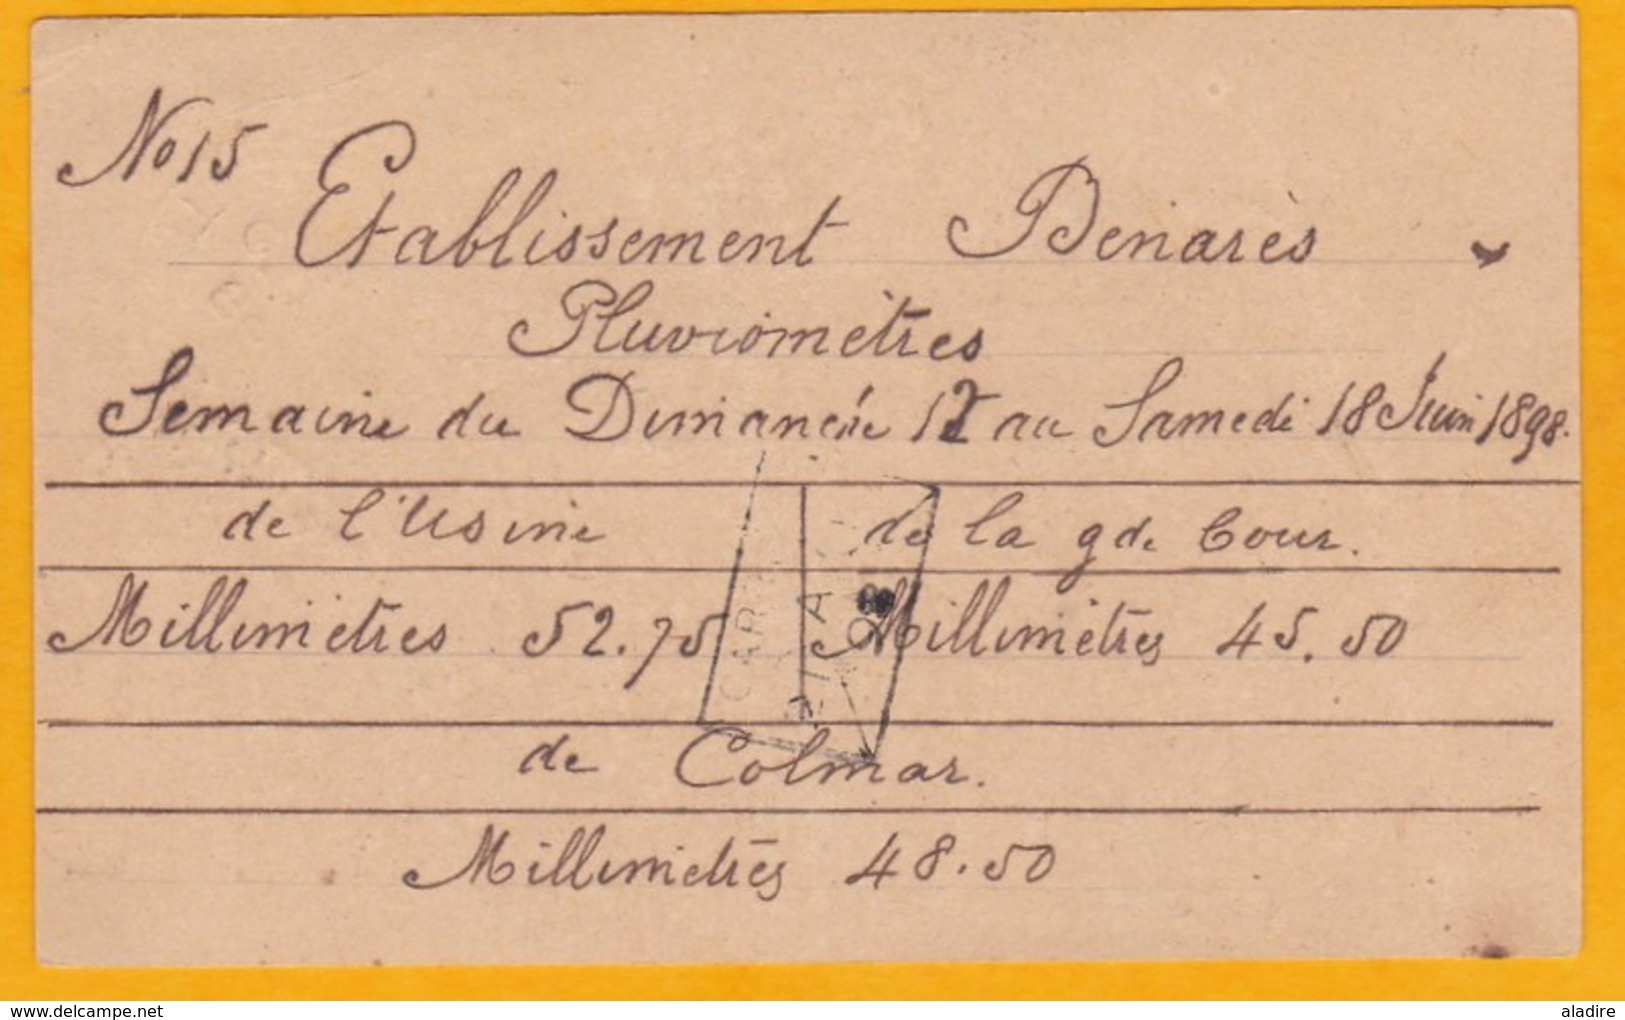 No 15
Etablissement Benarès
Pluviomètres
Semaine du Dimanche 12 au Samedi 18 Juin 1898.
de l'Usine de la gde Cour.
Millimètres 52.75 Millimètres 45.50
de Colmar.
Millimètres 48.50
delcampe.net
aladire